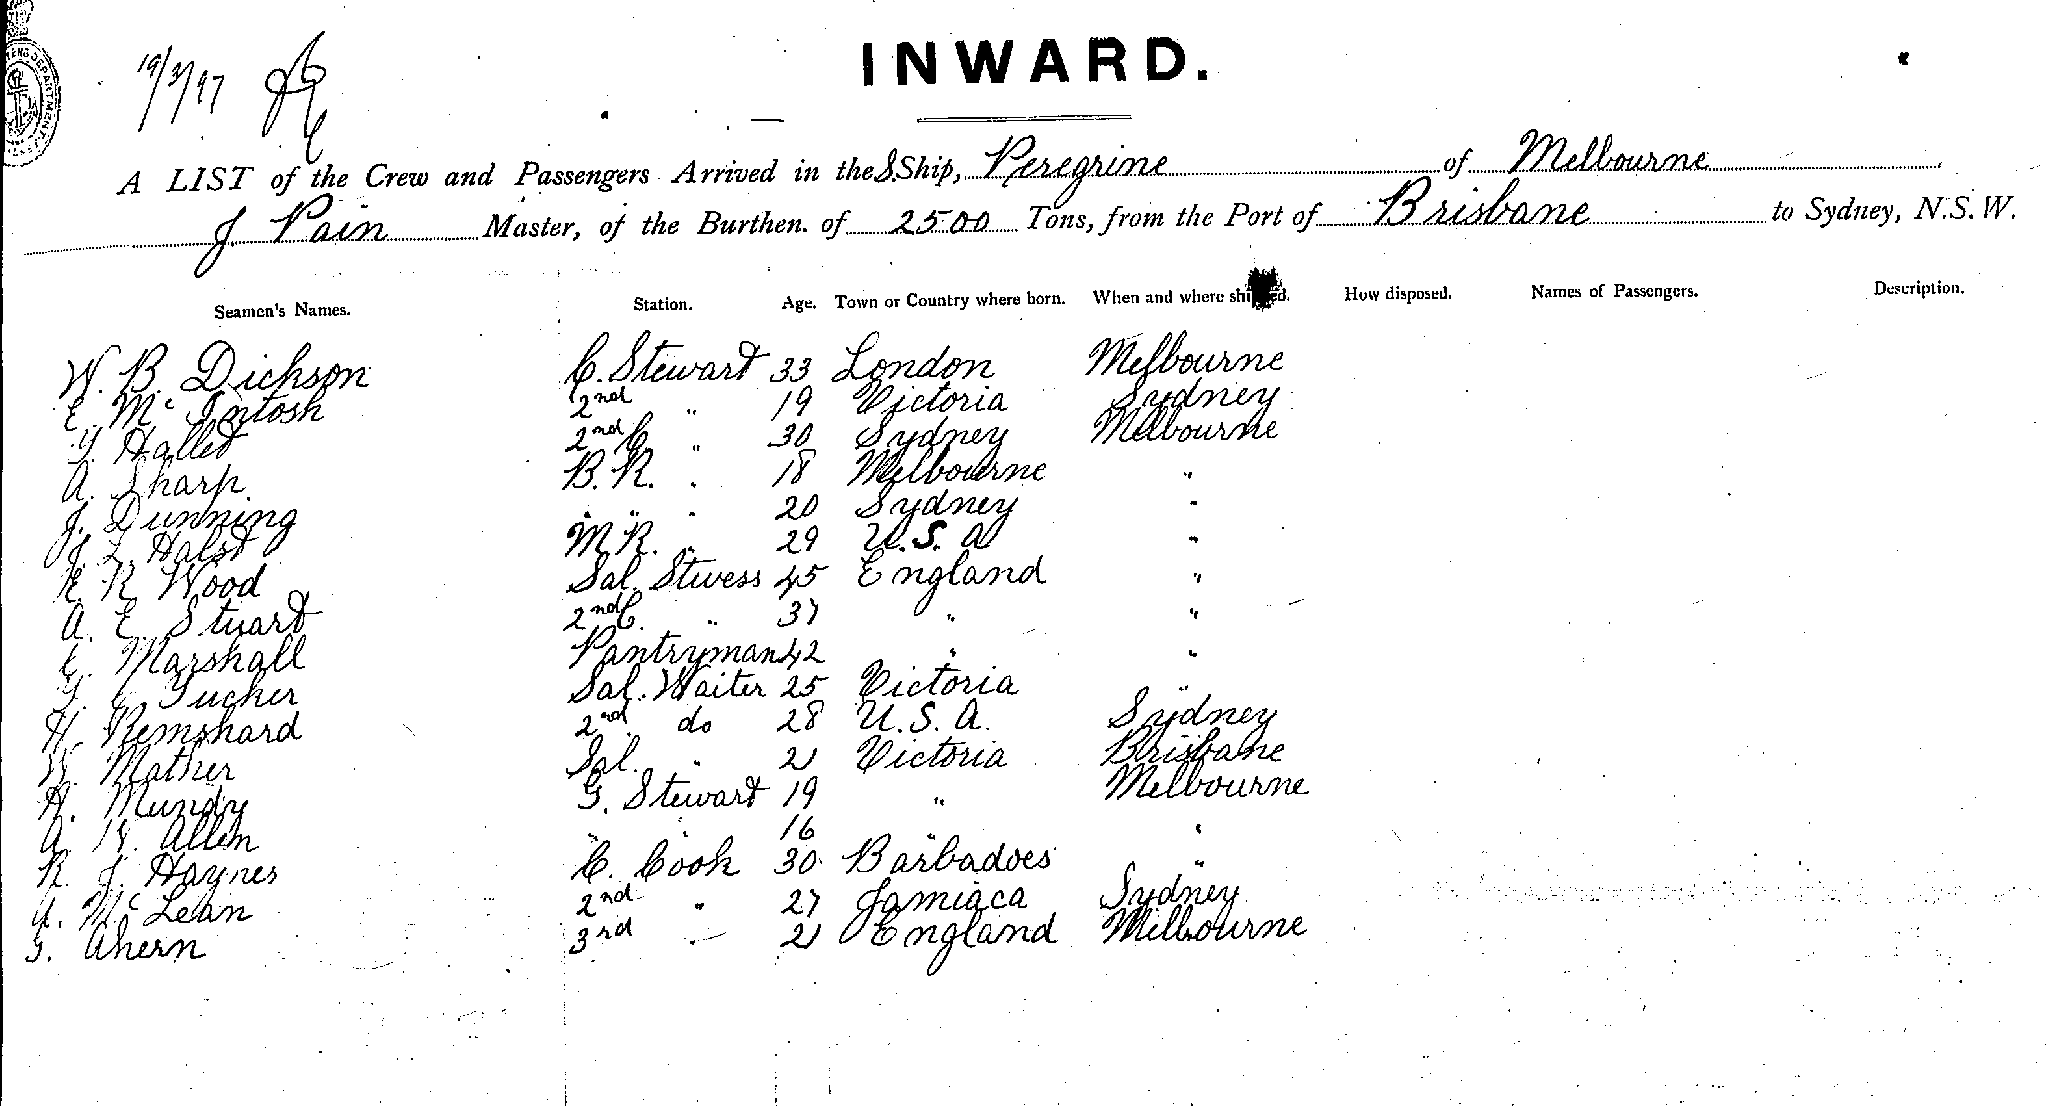 19/3/97
INWARD.
A LIST of the Crew and Passengers Arrived in the S.Ship, Peregrine of Melbourne
J. Pain Master, of the Burthen. of 2500 Tons, from the Port of Brisbane to Sydney, N.S.W.
Seamen's Names. Station. Age. Town or Country where born. When and where shipped. How disposed. Names of Passengers. Description.
W. B. Dickson C. Stewart 33 London Melbourne
E. McIntosh 2nd " 19 Victoria Sydney
Hallet 2nd C " 30 Sydney Melbourne
A. Sharp B.R. " 18 Melbourne "
J. Dunning " " " 20 Sydney "
J. L. Halst M.R. " 29 U.S.A "
R. R. Wood Sal. Stwess 45 England "
A. E. Stuart 2nd C. " 37 " "
E. Marshall Pantryman 42 " "
Tucker Sal. Waiter 25 Victoria "
H. Remshard 2nd do 28 U.S.A. Sydney
W. Mather Sal. " 21 Victoria Brisbane
H. Mundy G. Stewart 19 " Melbourne
A. W. Allen " " 16 " "
R. J. Haynes C. Cook 30 Barbadoes "
A. McLean 2nd " 27 Jamiaca Sydney
G. Ahern 3rd " 21 England Melbourne